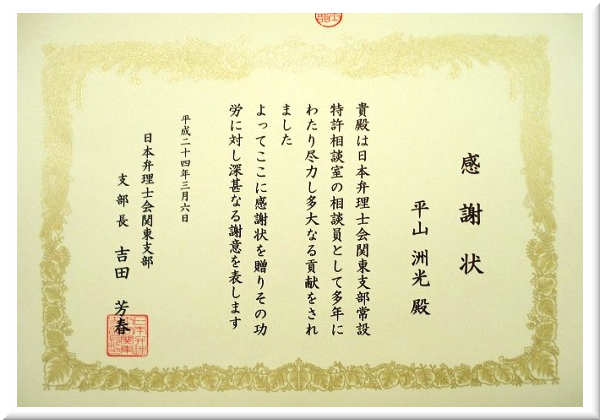 感謝状
平山 洲光 殿
貴殿は日本弁理士会関東支部常設
特許相談室の相談員として多年に
わたり尽力し多大なる貢献をされ
ました
よってここに感謝状を贈りその功
労に対し深甚なる謝意を表します
平成二十四年三月六日
日本弁理士会関東支部
支部長 吉田 芳春